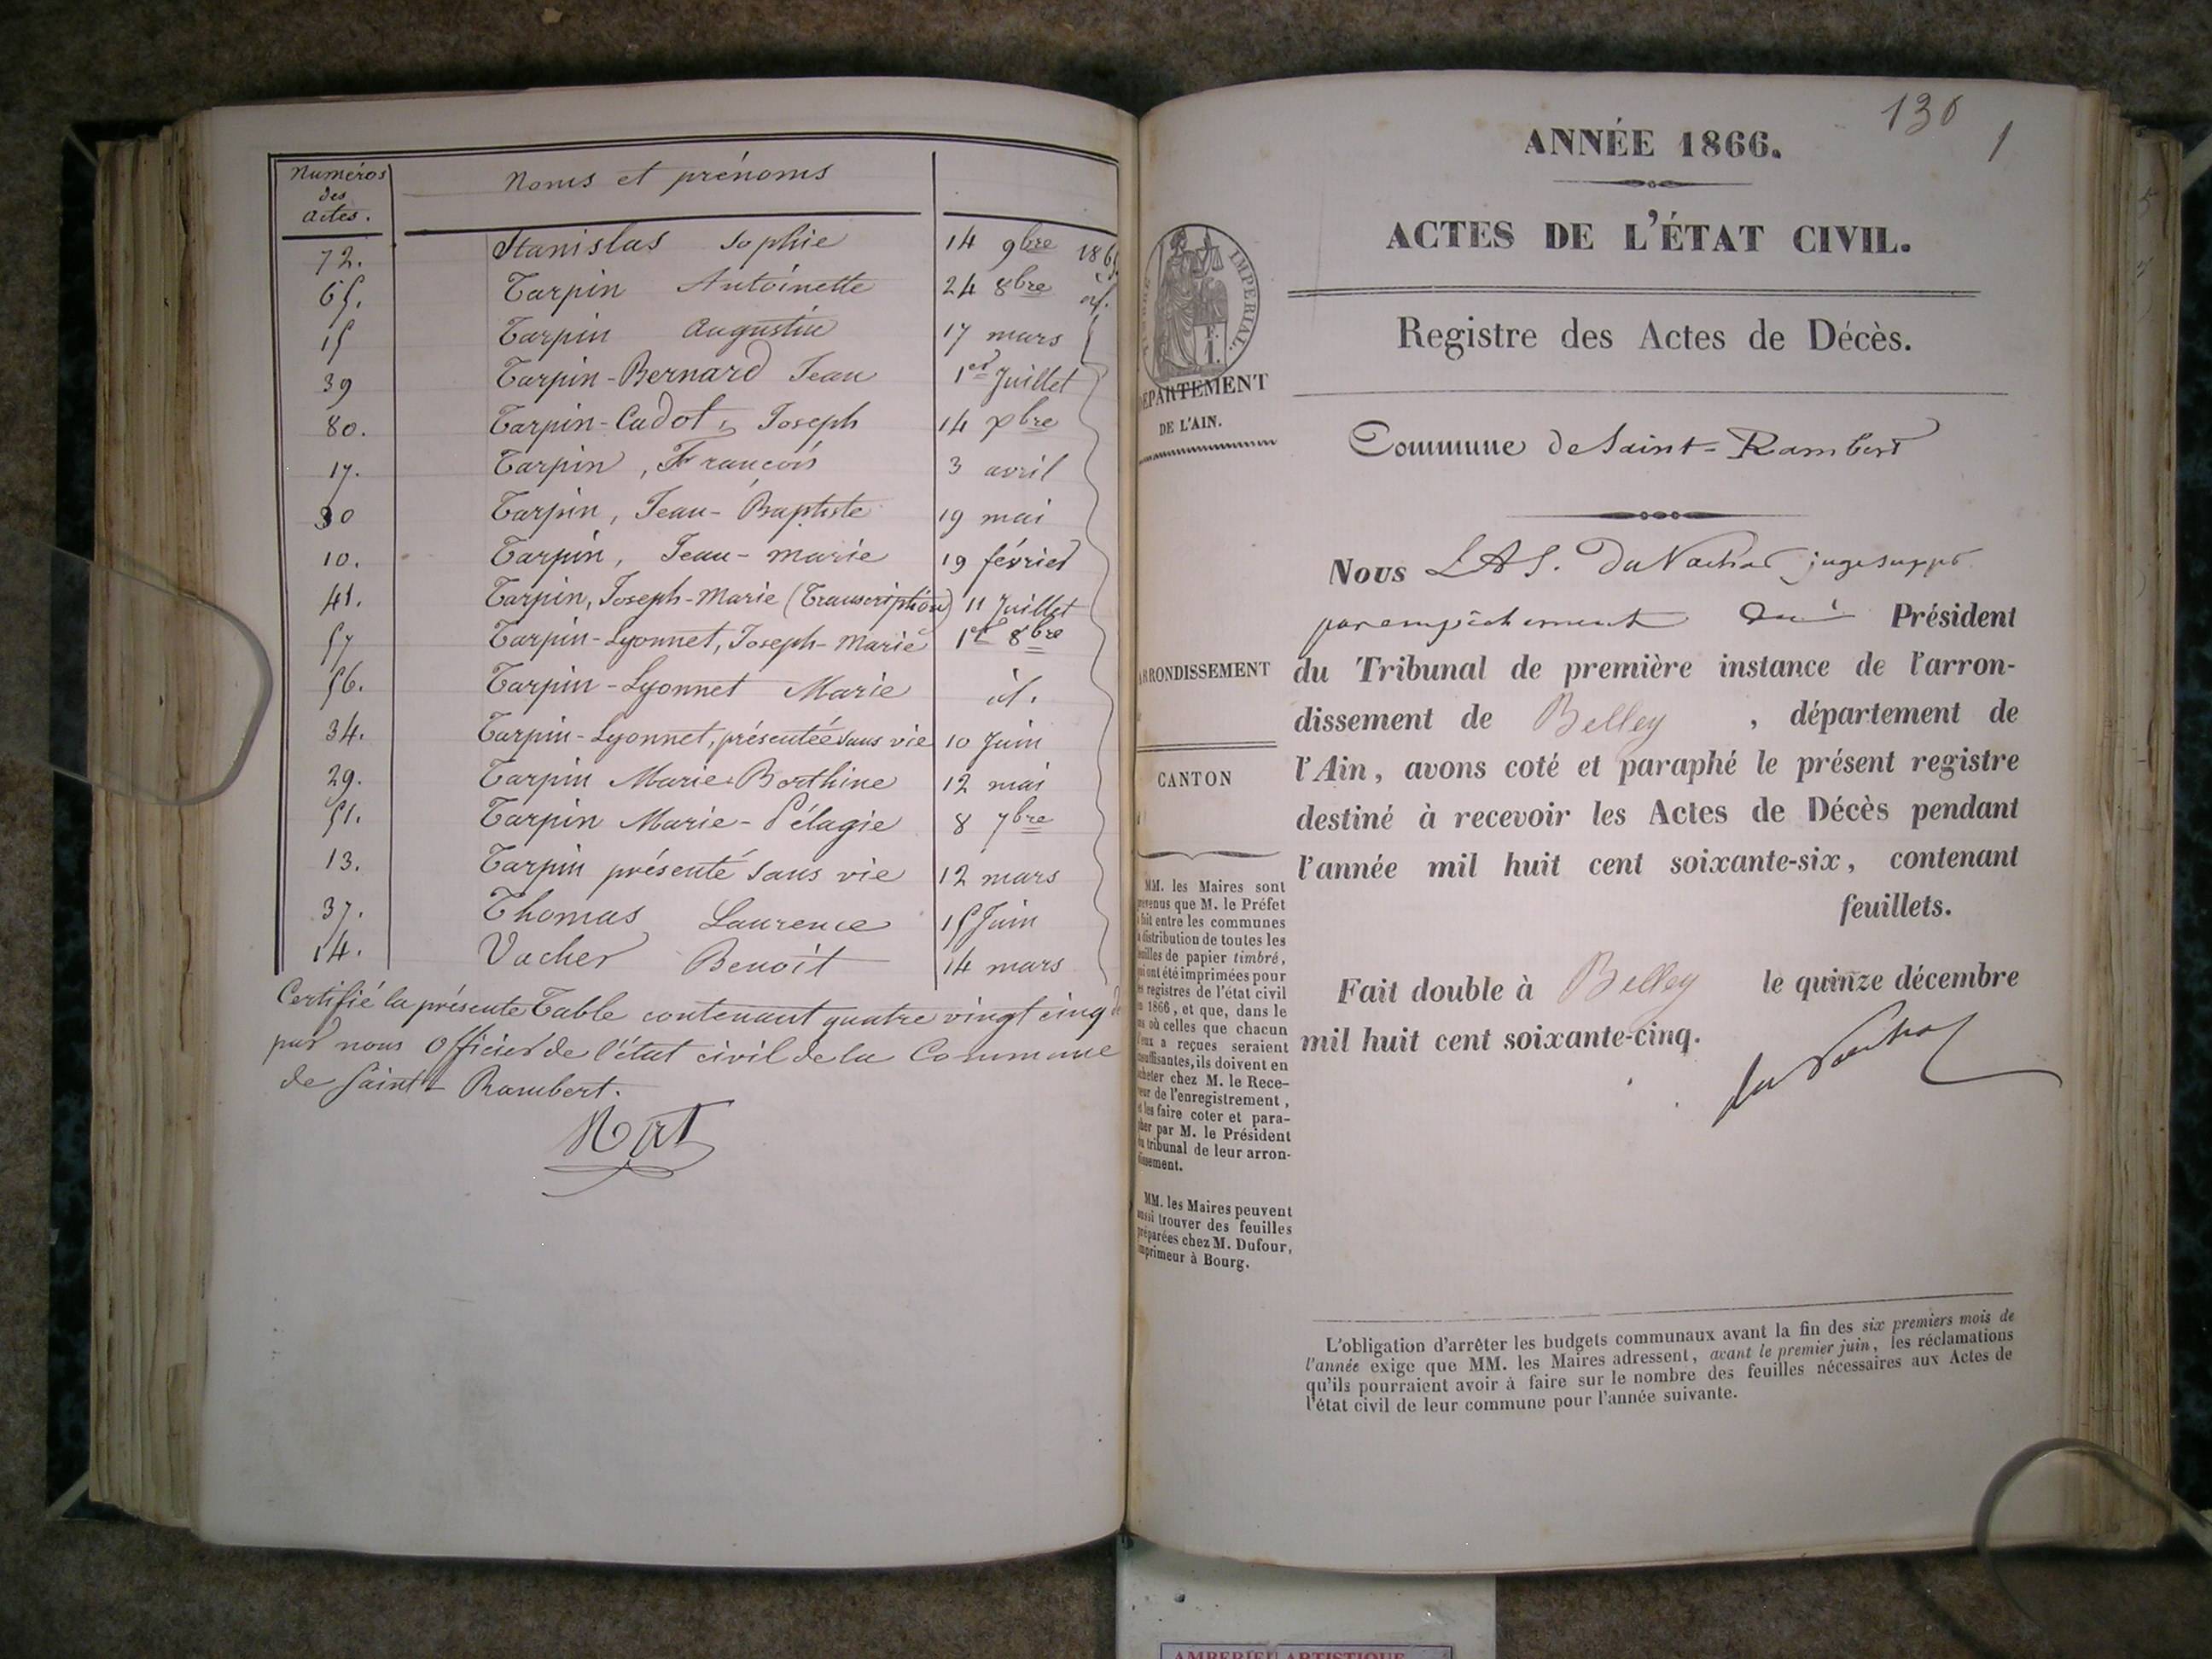 Numéros des actes. Noms et prénoms
72. Stanislas Sophie 14 9bre 1865
65. Tarpin Antoinette 24 8bre id.
15 Tarpin Augustin 17 mars
39 Tarpin-Bernard Jean 1er Juillet
80. Tarpin-Cadot, Joseph 14 xbre
17. Tarpin, François 3 avril
30 Tarpin, Jean-Baptiste 19 mai
10. Tarpin, Jean-marie 19 février
41. Tarpin, Joseph-Marie (Transcription) 11 Juillet
57 Tarpin-Lyonnet, Joseph-Marie 1er 8bre
56. Tarpin-Lyonnet Marie id.
34. Tarpin-Lyonnet, présentée sans vie 10 Juin
29. Tarpin Marie-Berthine 12 mai
51. Tarpin Marie-Pélagie 8 7bre
13. Tarpin présenté sans vie 12 mars
37. Thomas Laurence 15 Juin
14. Vacher Benoît 14 mars
Certifié la présente Table contenant quatre vingt cinq
par nous Officier de l'état civil de la Commune
de Saint-Rambert.
130
1
ANNÉE 1866.
ACTES DE L'ÉTAT CIVIL.
Registre des Actes de Décès.
Commune de Saint-Rambert
IMPERIAL
1.
DÉPARTEMENT
DE L'AIN.
ARRONDISSEMENT
CANTON
MM. les Maires sont
prévenus que M. le Préfet
a fait entre les communes
la distribution de toutes les
feuilles de papier timbré,
qui ont été imprimées pour
les registres de l'état civil
en 1866, et que, dans le
cas où celles que chacun
d'eux a reçues seraient
insuffisantes, ils doivent en
acheter chez M. le Rece-
veur de l'enregistrement,
et les faire coter et para-
pher par M. le Président
du tribunal de leur arron-
dissement.
MM. les Maires peuvent
aussi trouver des feuilles
préparées chez M. Dufour,
imprimeur à Bourg.
Nous juge supp
par empêchement Président
du Tribunal de première instance de l'arron-
dissement de Belley, département de
l'Ain, avons coté et paraphé le présent registre
destiné à recevoir les Actes de Décès pendant
l'année mil huit cent soixante-six, contenant
feuillets.
Fait double à Belley le quinze décembre
mil huit cent soixante-cinq.
L'obligation d'arrêter les budgets communaux avant la fin des six premiers mois de
l'année exige que MM. les Maires adressent, avant le premier juin, les réclamations
qu'ils pourraient avoir à faire sur le nombre des feuilles nécessaires aux Actes de
l'état civil de leur commune pour l'année suivante.
AMBERIEU ARTISTIQUE